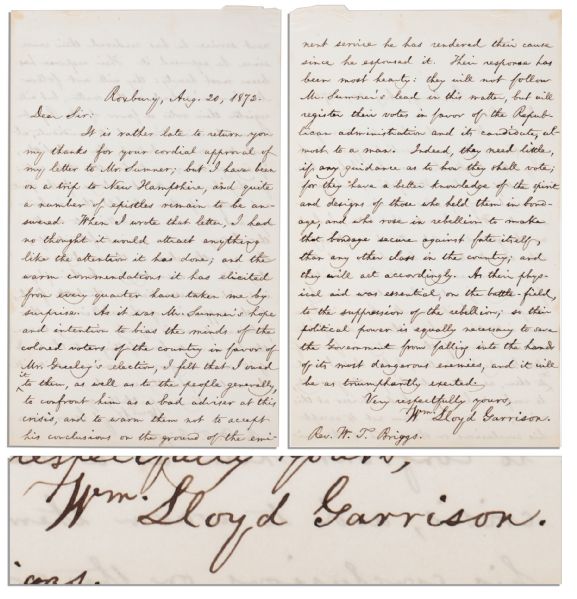 Roxbury, Aug. 20, 1872.
Dear Sir:
It is rather late to return you
my thanks for your cordial approval of
my letter to Mr. Sumner; but I have been
on a trip to New Hampshire, and quite
a number of epistles remain to be an-
swered. When I wrote that letter, I had
no thought it would attract anything
like the attention it has done; and the
warm commendations it has elicited
from every quarter have taken me by
surprise. As it was Mr. Sumner's hope
and intention to bias the minds of the
colored voters of the country in favor of
Mr. Greeley's election, I felt that I owed
it to them, as well as to the people generally,
to confront him as a bad adviser at this
crisis, and to warn them not to accept
his conclusions on the ground of the emi-
nent service he has rendered their cause
since he espoused it. Their response has
been most hearty: they will not follow
Mr. Sumner's lead in this matter, but will
register their votes in favor of the Repub-
lican administration and its candidate, al-
most to a man. Indeed, they need little,
if any guidance as to how they shall vote;
for they have a better knowledge of the spirit
and designs of those who held them in bond-
age, and who rose in rebellion to make
that bondage secure against fate itself,
than any other class in the country; and
they will act accordingly. As their phys-
ical aid was essential, on the battle-field,
to the suppression of the rebellion; so their
political power is equally necessary to save
the Government from falling into the hands
of its most dangerous enemies, and it will
be as triumphantly exerted.
Very respectfully yours,
Wm. Lloyd Garrison.
Rev. W. T. Briggs.
respectfully yours,
Wm. Lloyd Garrison.